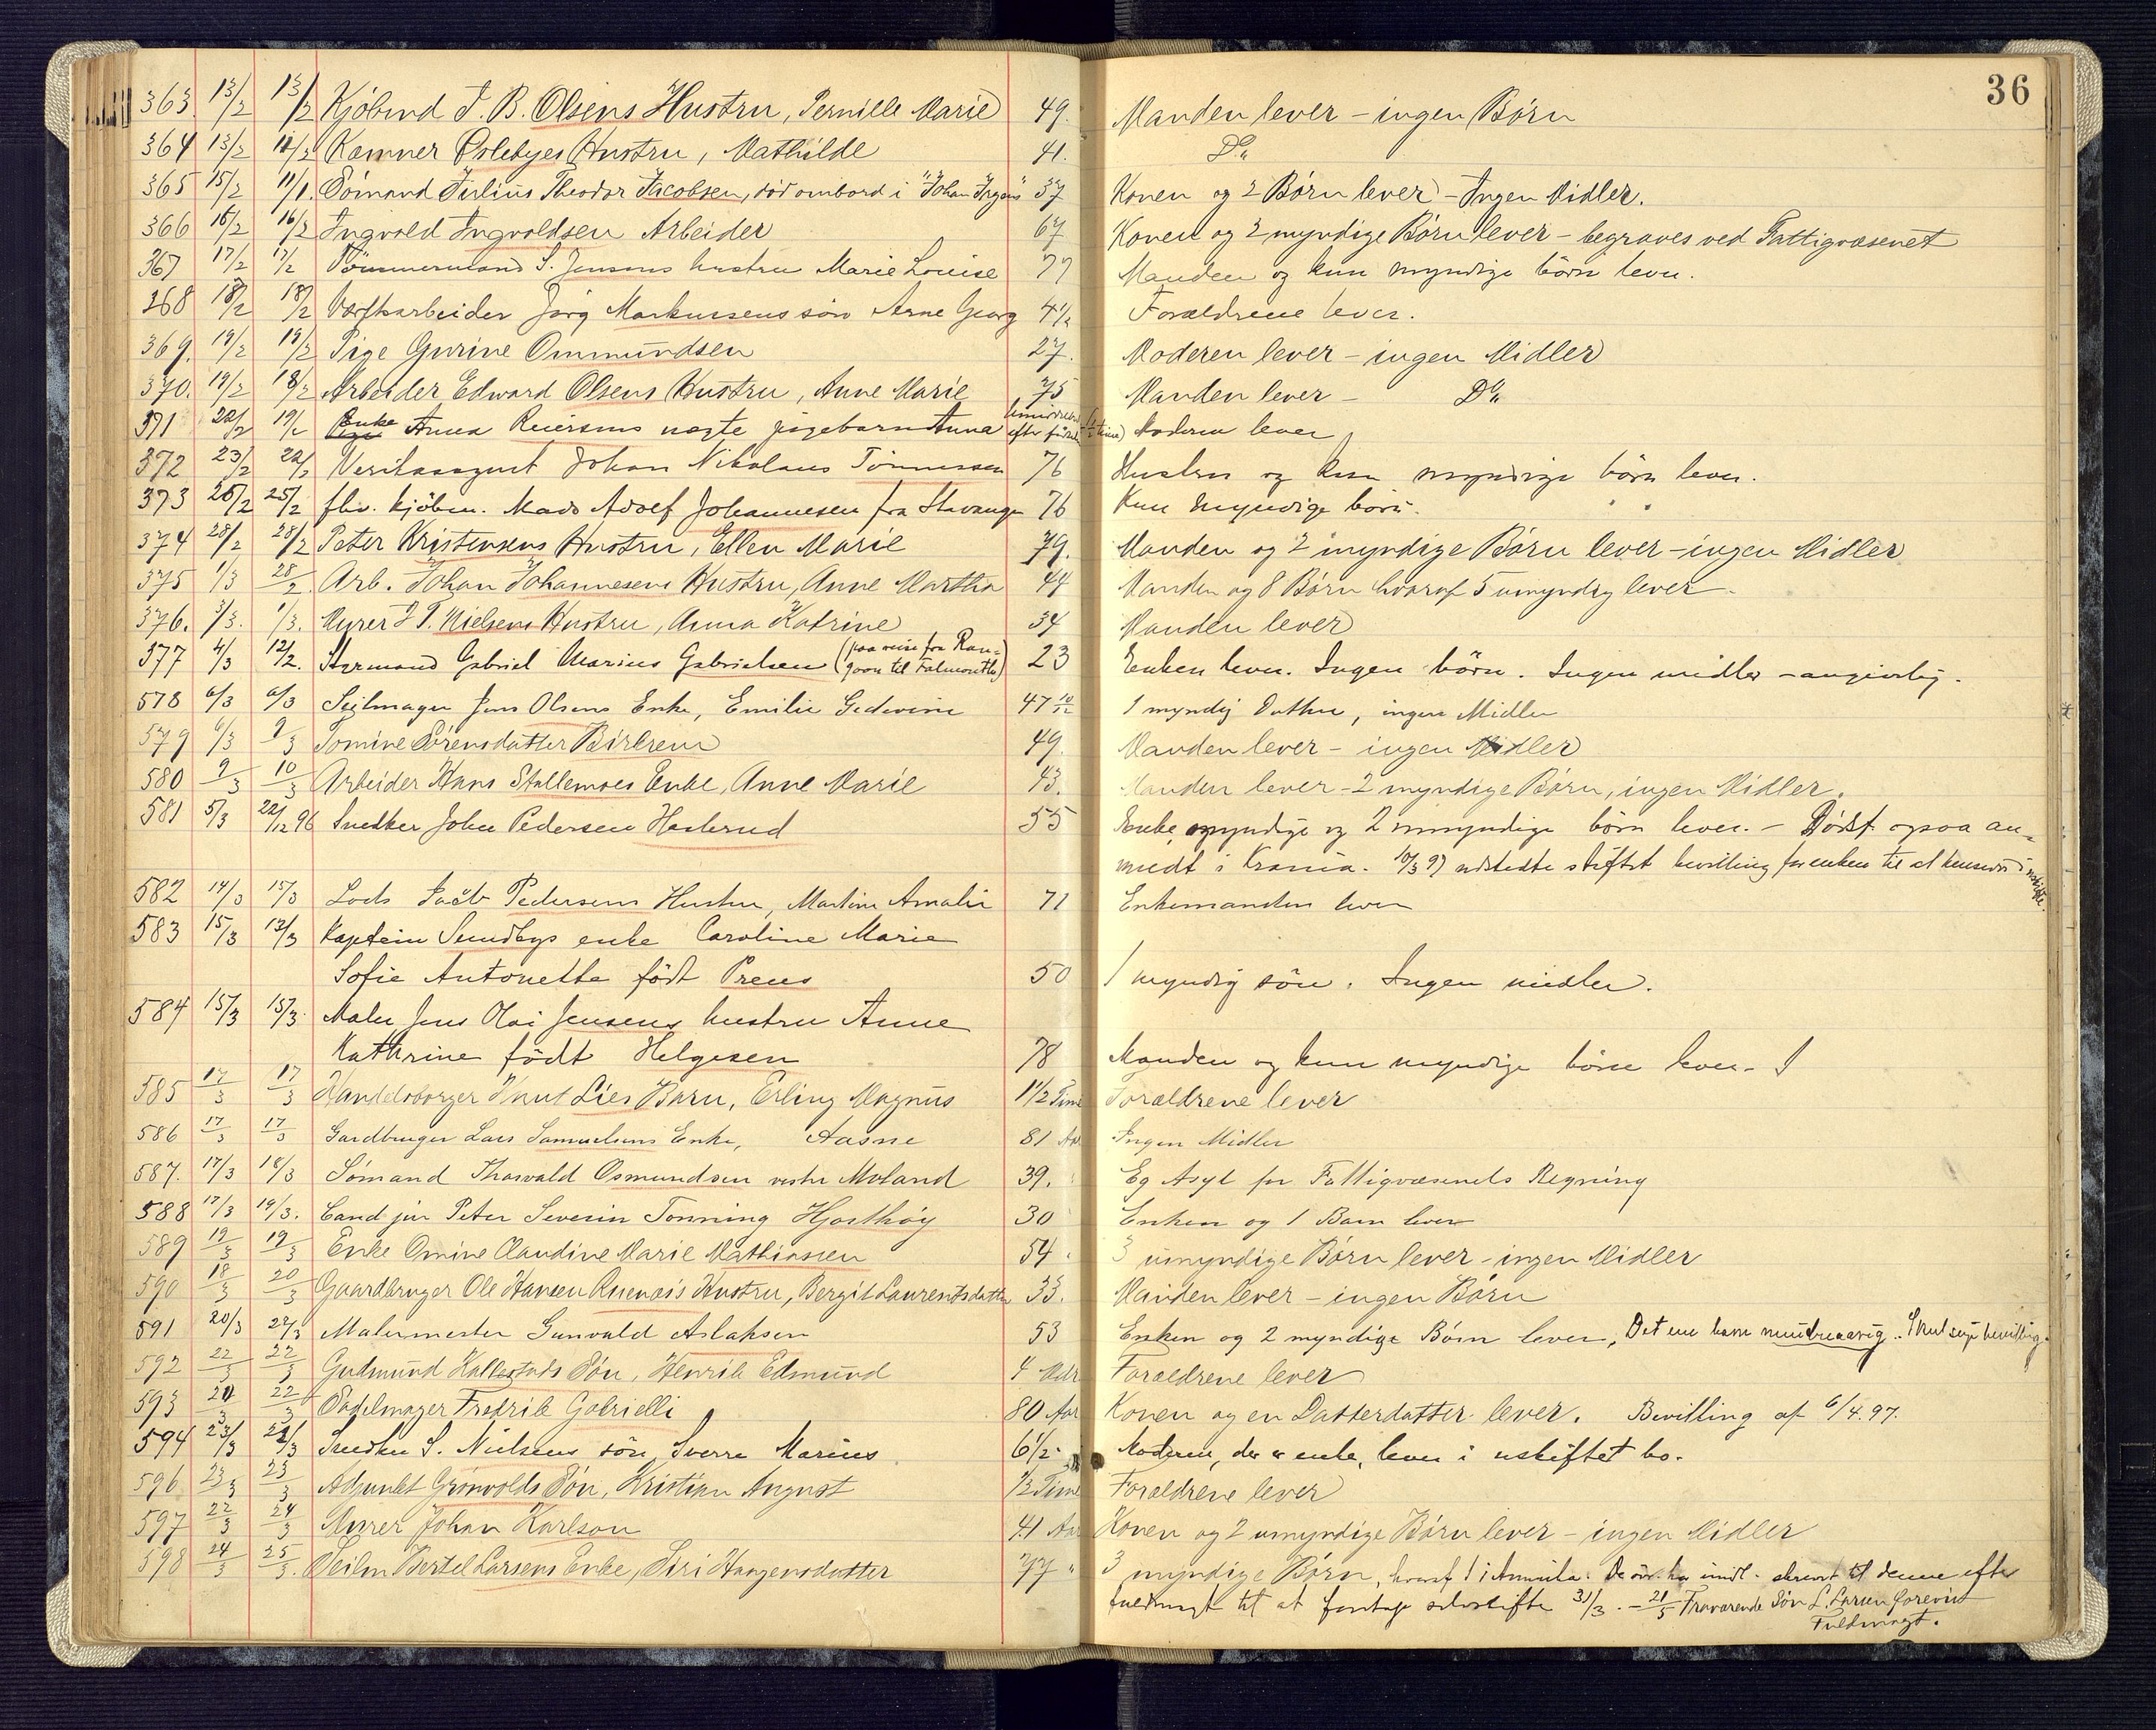 36
363. 13/2 13/2 Kjöbmd J. B. Olsens Hustru, Pernille Marie 49. Manden lever - ingen Börn
364 13/2 12/2 Kæmner Oslebyes Hustru, Mathilde 41. Do
365 15/2 11/1. Sömand Julius Theodor Jacobsen, död ombord i "Johan Irgens" 37 Konen og 2 Börn lever - Ingen Midler.
366 16/2 16/2 Ingvald Ingvaldsen Arbeider 67 Konen og 2 myndige Börn lever - begraves ved Fattigvæsenet
367 17/2 17/2 Tömmermand S. Jensens hustru Marie Louise 77 Manden og kun myndige börn lever.
368 18/2 18/2 Værftsarbeider Jörg Markussens sön Arne Georg 4 1/2 Forældrene lever.
369. 19/2 19/2 Pige Gurine Ommundsen 27. Moderen lever - ingen Midler
370. 19/2 18/2 Arbeider Edward Olsens Hustru, Anne Marie 75 Manden lever - Do
371 22/2 19/2 Enke Anna Reiersens uægte pigebarn Anna efter födsel Moderen lever
372 23/2 22/2 Veritasagent Johan Nikolaus Tönnessen 76 Hustru og kun myndige börn lever.
373 26/2 25/2 fhv. kjöbm. Mads Adolf Johannesen fra Stavanger 76 Kun myndige börn. " "
374 28/2 28/2 Peter Kristensens Hustru, Ellen Marie 79. Manden og 2 myndige Börn lever - ingen Midler
375 1/3 28/2 Arb. Johan Johannesens Hustru, Anne Martha 44 Manden og 8 Börn hvoraf 5 umyndig lever -
376. 3/3. 1/3. Murer J T. Nielsens Hustru, Anna Katrine 34 Manden lever
377 4/3 12/2. Styrmand Gabriel Marius Gabrielsen (paa reise fra Rangoon til Falmouth) 23 Enken lever. Ingen börn. Ingen midler - angivelig.
578 6/3 6/3 Seilmager Jens Olsens Enke, Emilie Gedevine 47 10/12 1 myndig Datter, ingen Midler
579 6/3 9/3 Tomine Sörensdatter Birkrem 49. Manden lever - ingen Midler
580 9/3 10/3 Arbeider Hans Stallemoes Enke, Anne Marie 43. Manden lever - 2 myndige Börn, ingen Midler.
581 5/3 22/12 96 Snedker John Pedersen Hasterud 55 Enke, myndige og 2 umyndige börn lever. - Dödsf. ogsaa an-
meldt i Krania. 10/3 97 udstedte stiftet bevilling for enken til at hensidde i uskifte.
582 14/3 15/3 Lods Jacob Pedersens Hustru, Martine Amalie 71 Enkemanden lever
583 15/3 13/3 Kaptein Sundbys enke Caroline Marie
Sofie Antonette födt Preus 50 1 myndig sön. Ingen midler.
584 15/3 15/3. Maler Jens Olai Jensens hustru Anne
Kathrine födt Helgesen 78 Manden og kun myndige börn lever.
585 17/3 17/3 Handelsborger Knut Lies Barn, Erling Magnus 1 1/2 Time Forældrene lever
586 17/3 17/3 Gardbruger Lars Samuelsens Enke, Aasne 81 Aar Ingen Midler
587. 17/3 18/3 Sömand Thorvald Osmundsen vestre Moland 39. Eg Asyl for Fattigvæsenets Regning
588 17/3 19/3. Cand jur Peter Severin Tonning Hjorthöy 30 Enken og 1 Barn lever
589 19/3 19/3 Enke Omine Claudine Marie Mathiassen 54. 3 umyndige Börn lever - ingen Midler
590 18/3 20/3 Gaardbruger Ole Hansen Hustru, Bergit Laurentsdatter 33. Manden lever - ingen Börn
591 20/3 22/3 Malermester Gunvald Aslaksen 53 Enken og 2 myndige Börn lever. Det ene barn mindreaarig. bevilling.
592 22/3 22/3 Gudmund Kallestads Sön, Henrik Edmund 4 Mdr Forældrene lever
593 20/3 22/3 Sadelmager Fredrik Gabrielli 80 Aar Konen og en Datterdatter lever. Bevilling af 6/4.97.
594 23/3 22/3 Snedker S. Nielsens sön Sverre Marius 6 1/2 Moderen, der er enke, lever i uskiftet bo.
596 23/3 23/3 Adjunkt Grönvolds Sön, Kristian August 1/2 Time Forældrene lever
597 22/3 24/3 Murer Johan Karlson 41 Aar Konen og 2 umyndige Börn lever - ingen Midler
598 24/3 25/3. Seilm Bertel Larsens Enke, Siri Haagensdatter 77 " 3 myndige Börn, hvoraf 1 i Amerika. De övr. har skrevet til denne efter
fuldmagt til at foretage selvskifte 31/3. - 21/5 Fraværende Sön L. Larsen forevist
Fuldmagt.